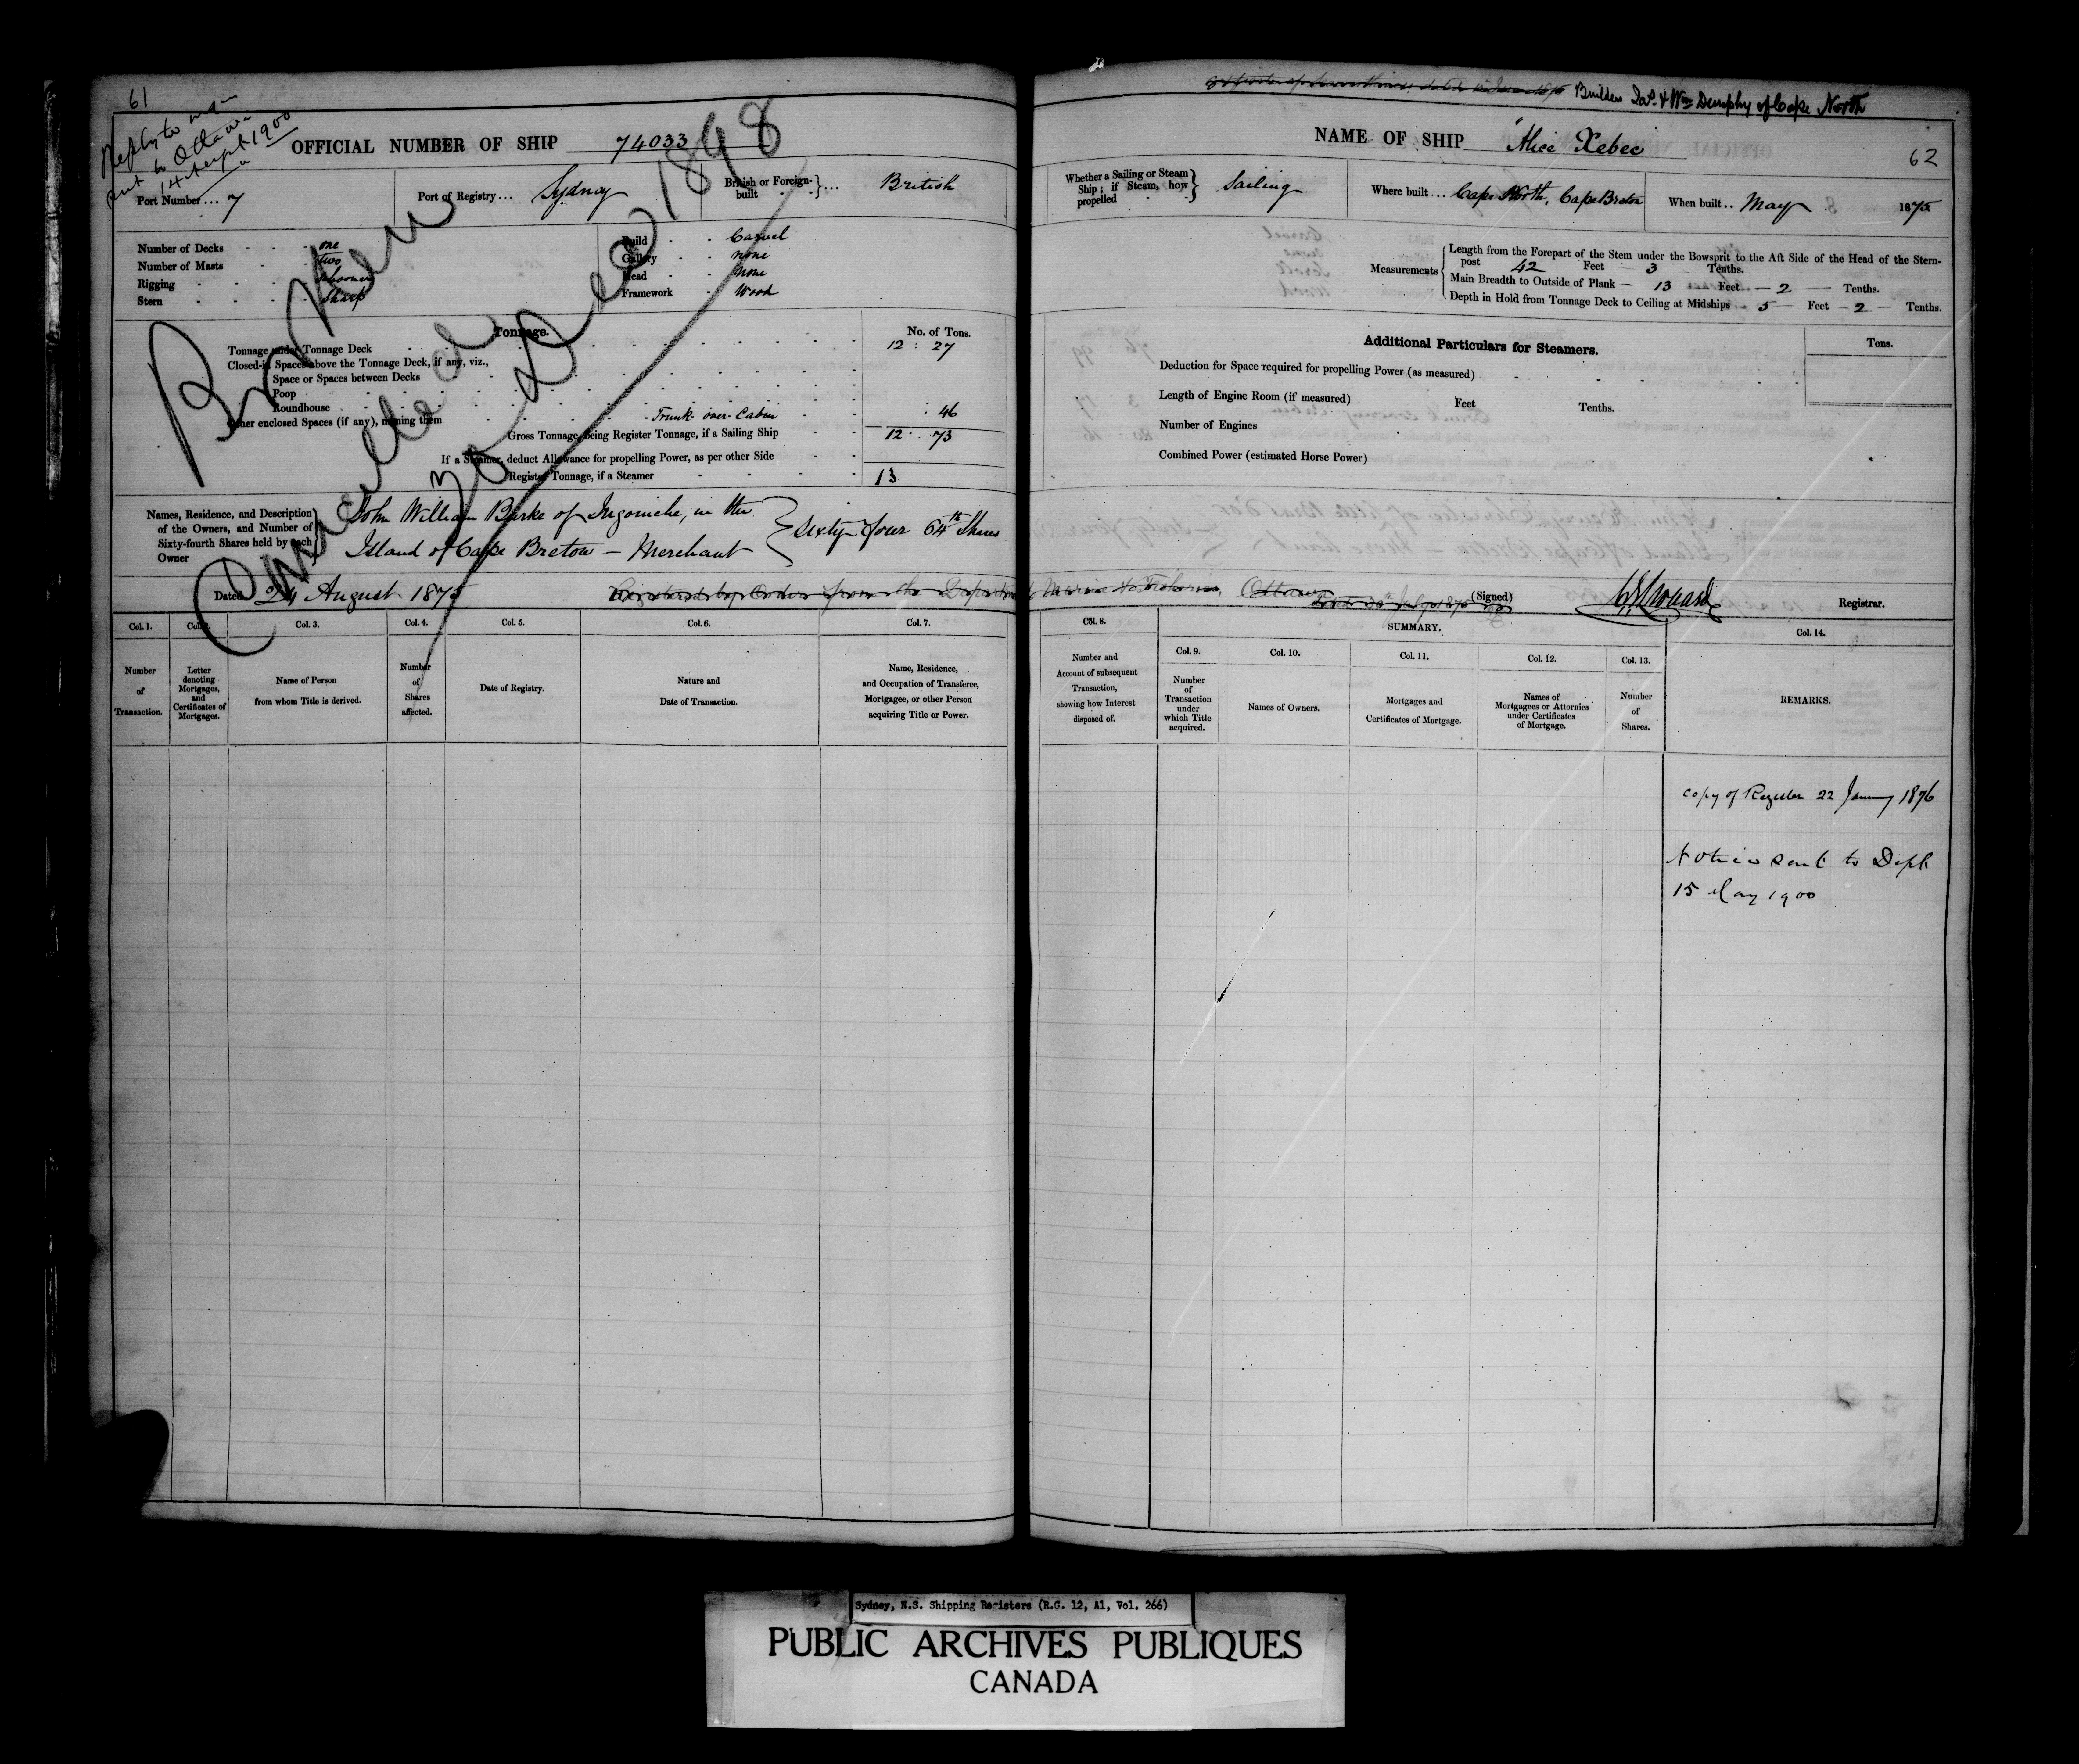 61
Reply to
sent to Ottawa
14 Sept 1900
OFFICIAL NUMBER OF SHIP 74033
Port Number... 7
Port of Registry... Sydney
British or Foreign-built ... British
Broken up
Cancelled
30 Dec 1898
Number of Decks one
Number of Masts two
Rigging Schooner
Stern Sharp
Build Carvel
Gallery none
Head None
Framework Wood
Tonnage.
No. of Tons.
Tonnage under Tonnage Deck 12 : 27
Closed-in Spaces above the Tonnage Deck, if any, viz.,
Space or Spaces between Decks
Poop
Roundhouse
Other enclosed Spaces (if any), naming them Trunk over Cabin : 46
Gross Tonnage, being Register Tonnage, if a Sailing Ship 12 : 73
If a Steamer, deduct Allowance for propelling Power, as per other Side
Register Tonnage, if a Steamer 13
Names, Residence, and Description of the Owners, and Number of Sixty-fourth Shares held by each Owner
John William Burke of Ingoniche, in the
Island of Cape Breton — Merchant
Sixty four 64th Shares
Dated 24 August 1875
Registered by Order from the Department Marine & Fisheries, Ottawa
Col. 1.
Col. 2.
Col. 3.
Col. 4.
Col. 5.
Col. 6.
Col. 7.
Number of Transaction.
Letter denoting Mortgages, and Certificates of Mortgages.
Name of Person from whom Title is derived.
Number of Shares affected.
Date of Registry.
Nature and Date of Transaction.
Name, Residence, and Occupation of Transferee, Mortgagee, or other Person acquiring Title or Power.
Builders Jas. & Wm Dunphy of Cape North
NAME OF SHIP "Alice Xebec"
62
Whether a Sailing or Steam Ship; if Steam, how propelled Sailing
Where built... Cape North, Cape Breton
When built.. May 1875
Measurements
Length from the Forepart of the Stem under the Bowsprit to the Aft Side of the Head of the Stern-
post 42 Feet 3 Tenths.
Main Breadth to Outside of Plank — 13 Feet — 2 — Tenths.
Depth in Hold from Tonnage Deck to Ceiling at Midships — 5 — Feet — 2 — Tenths.
Additional Particulars for Steamers.
Tons.
Deduction for Space required for propelling Power (as measured)
Length of Engine Room (if measured) Feet Tenths.
Number of Engines
Combined Power (estimated Horse Power)
(Signed)
Registrar.
Col. 8.
SUMMARY.
Col. 9.
Col. 10.
Col. 11.
Col. 12.
Col. 13.
Col. 14.
Number and Account of subsequent Transaction, showing how Interest disposed of.
Number of Transaction under which Title acquired.
Names of Owners.
Mortgages and Certificates of Mortgage.
Names of Mortgagees or Attornies under Certificates of Mortgage.
Number of Shares.
REMARKS.
Copy of Register 22 January 1876
Notice sent to Dept
15 May 1900
Sydney, N.S. Shipping Registers (R.G. 12, A1, Vol. 266)
PUBLIC ARCHIVES PUBLIQUES
CANADA